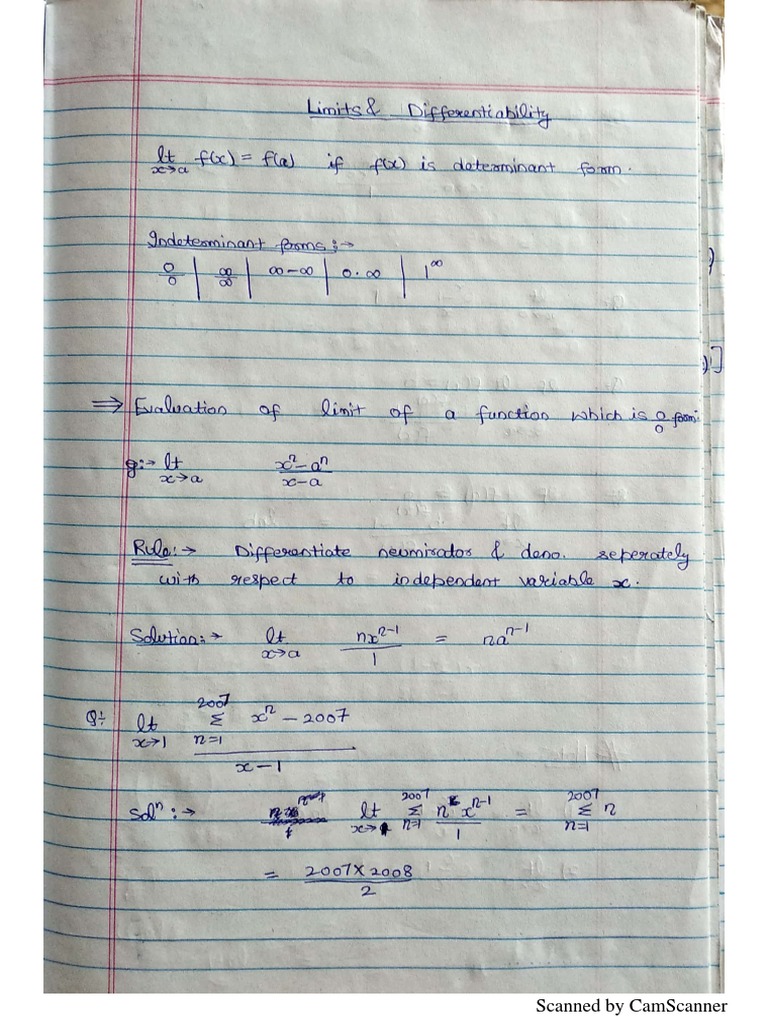 Limits & Differentiability
lt x→a f(x) = f(a) if f(x) is determinant form.
Indeterminant forms:→
0/0 | ∞/∞ | ∞-∞ | 0.∞ | 1^∞
⇒ Evaluation of limit of a function which is 0/0 form:
g:→ lt x→a (x^n - a^n)/(x-a)
Rule:→ Differentiate neumirator & deno. seperately
with respect to independent variable x.
Solution:→ lt x→a nx^(n-1)/1 = na^(n-1)
Q:- lt x→1 (2007 Σ n=1 x^n - 2007)/(x-1)
Sol^n:→ lt x→1 2007 Σ n=1 n x^(n-1)/1 = 2007 Σ n=1 n
= (2007 X 2008)/2
Scanned by CamScanner